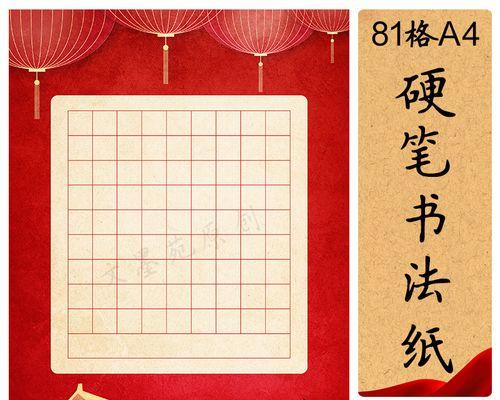 81格A4
硬笔书法纸
文墨苑原创